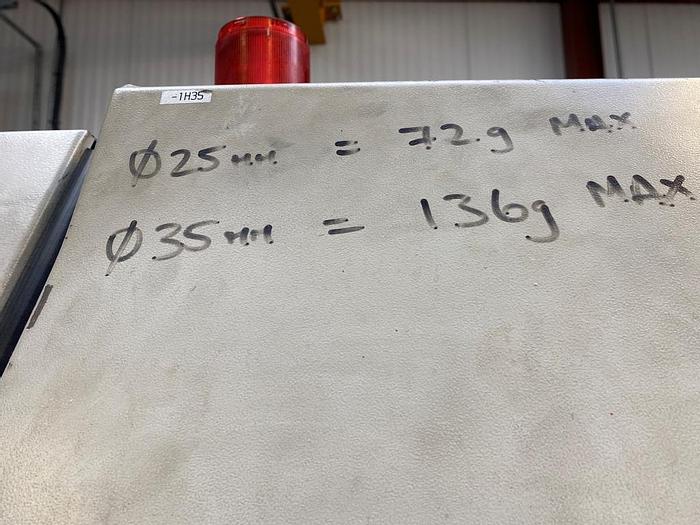 -1H35
Ø25mm = 72g MAX
Ø35mm = 136g MAX